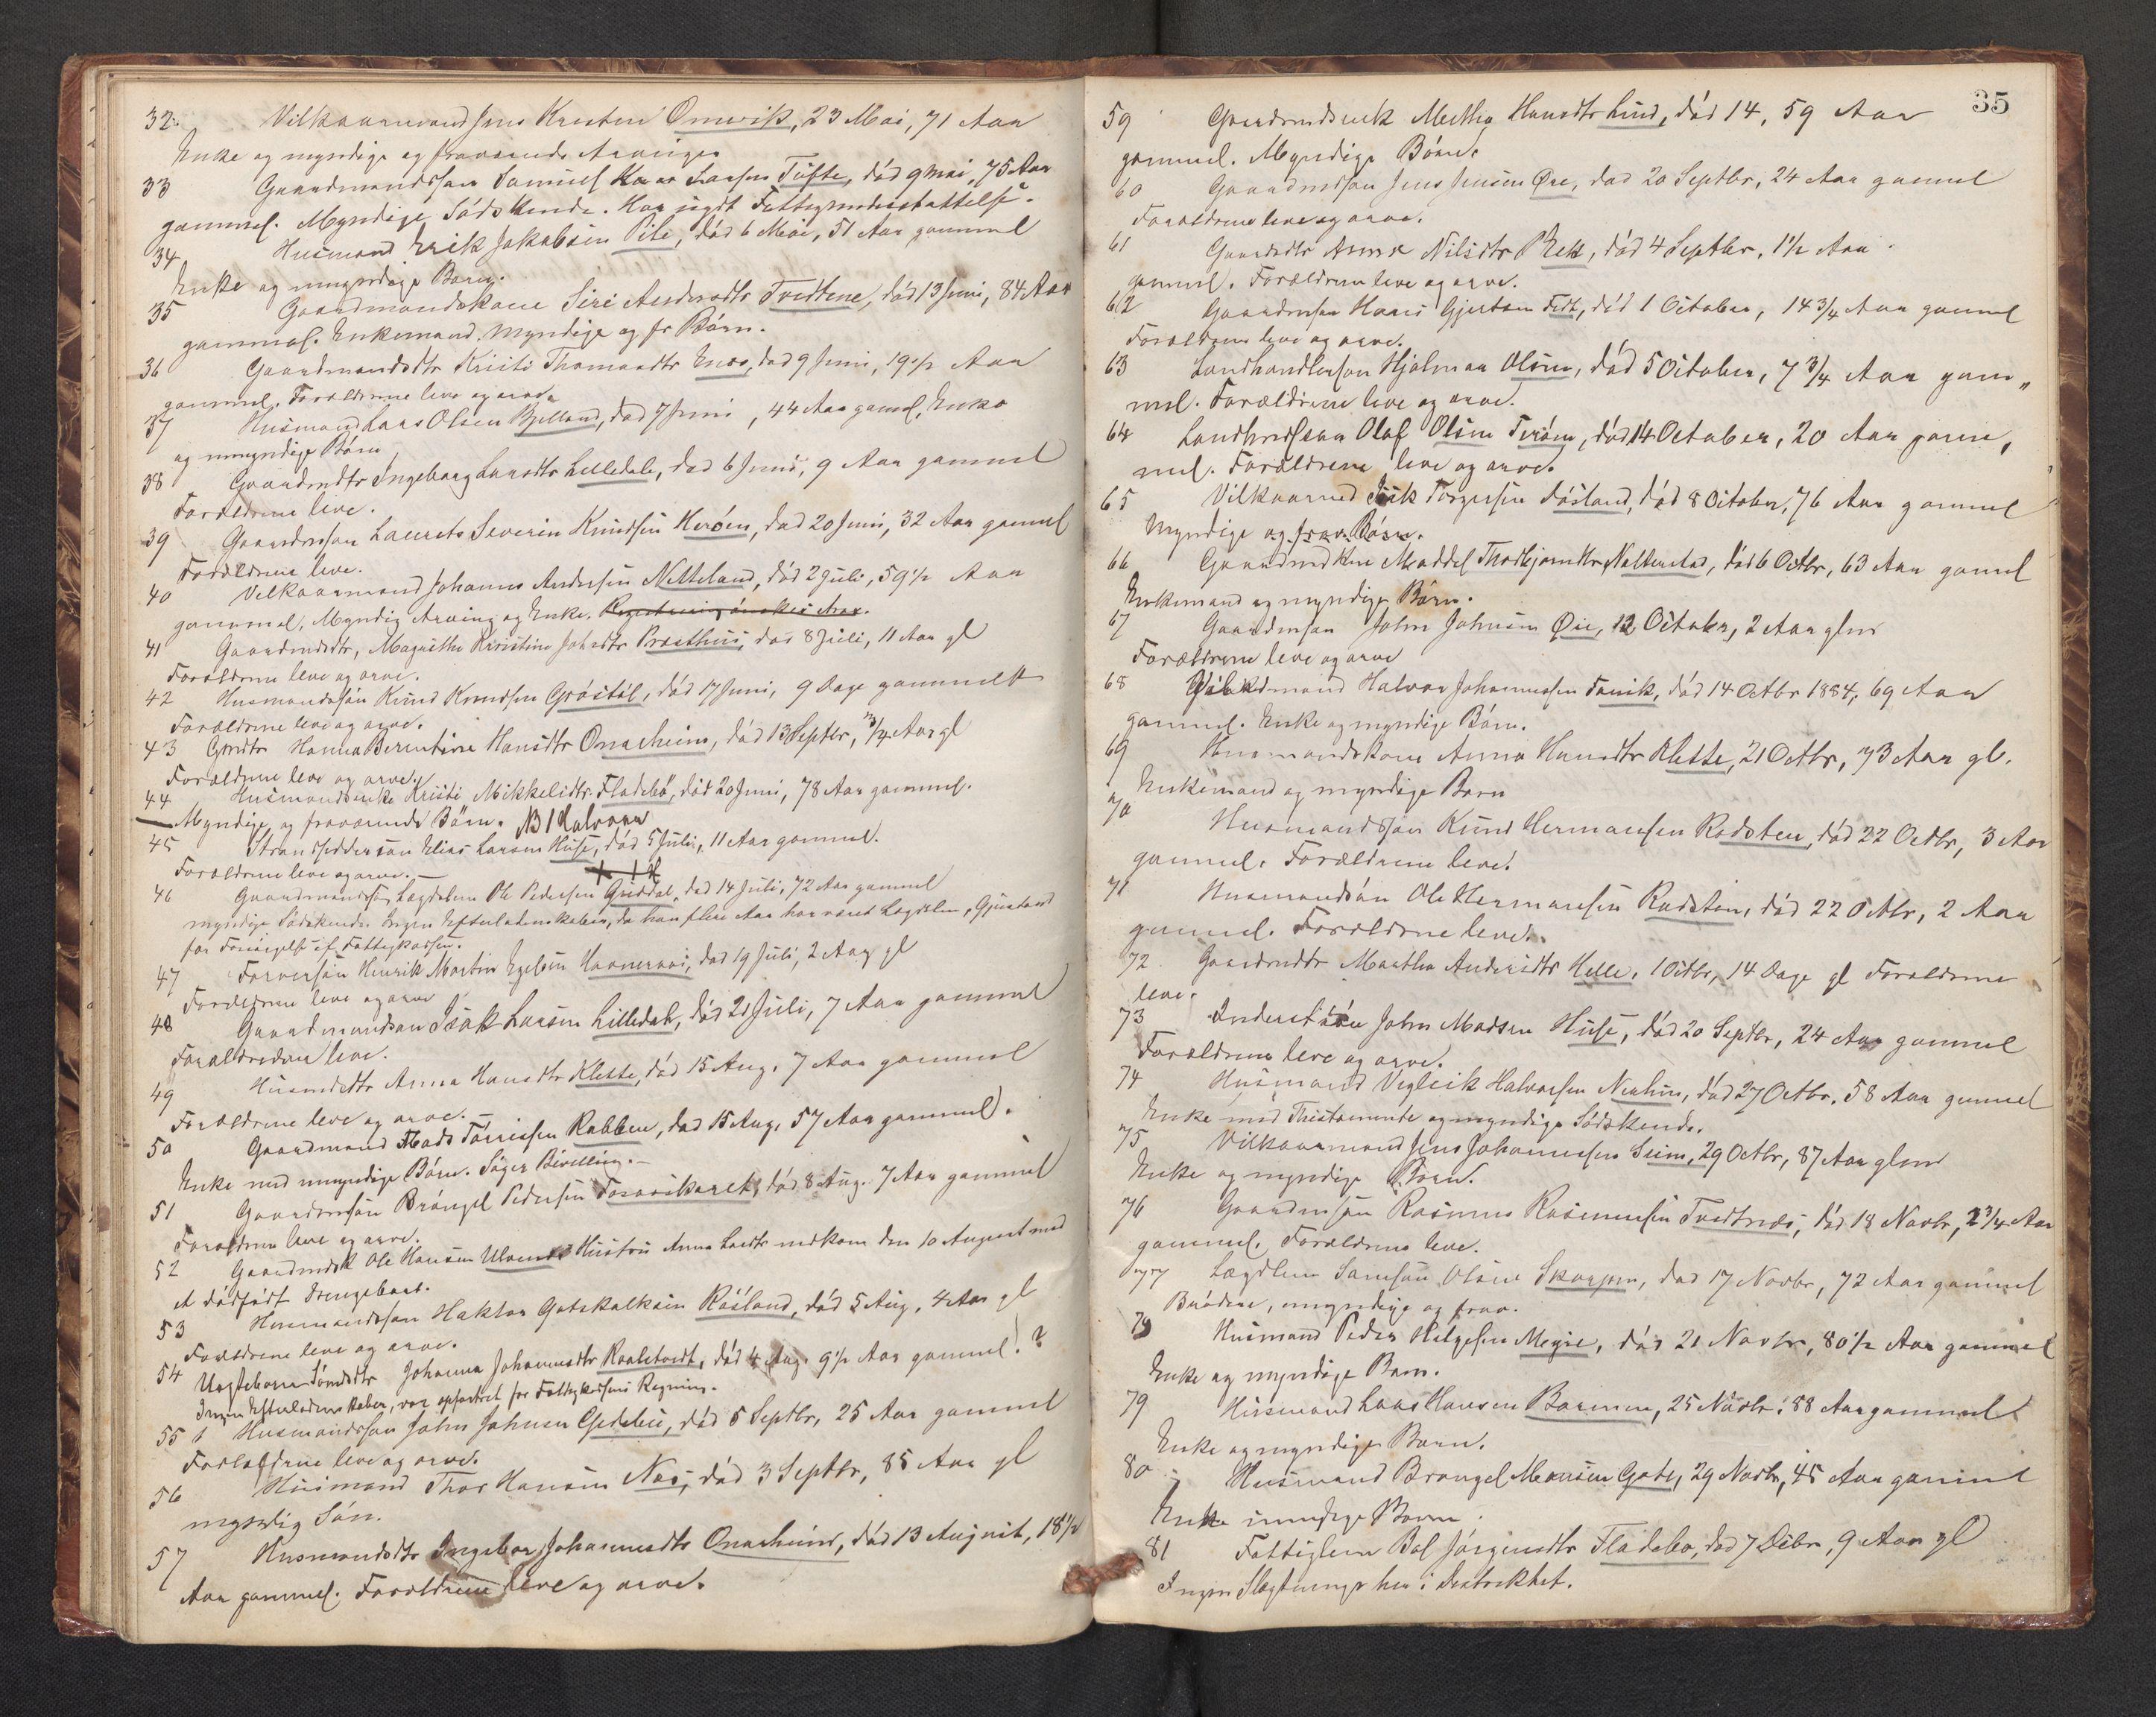 32. Vilkaarmand Jens Kristen Omvik, 23 Mai, 71 Aar
Enke og myndige og fraværende Arvinger
33 Gaardmandssøn Samuel Larsen Tufte, død 9 Mai, 75 Aar
gammel. Myndige Sødskende. Har nydt Fattigunderstøttelse.
34 Husmand Erik Jakobsen Pile, død 6 Mai, 51 Aar gammel
Enke og umyndige Børn.
35 Gaardmandskone Siri Andersdtr Tvedtene, død 13 Juni, 84 Aar
gammel. Enkemand, myndige og fr Børn.
36 Gaardmandsdtr Kristi Thomasdtr Enes, død 9 Juni, 19 1/2 Aar
gammel. Forældrene leve og arve
37 Husmand Lars Olsen Bjelland, død 7 Juni, 44 Aar gamel, Enke
og umyndige Børn
38 Gaardmdtr Ingeborg Larsdtr Lilledale, død 6 Juni, 9 Aar gammel
Forældrene leve.
39 Gaardmsøn Laurets Severin Knudsen Herøen, død 20 Juni, 32 Aar gammel
Forældrene leve.
40 Vilkaarmand Johannes Andersen Netteland, død 2 Juli, 59 1/2 Aar
gammel, Myndig Arving og Enke.
41 Gaardmdtr, Magrethe Kristine Johsdtr Præsthus, død 8 Juli, 11 Aar gl
Forældrene leve og arve.
42 Husmandssøn Knud Knudsen Grøstøl, død 17 Juni, 9 Dage gammelt
Forældrene leve og arve.
43 Gmdtr Hanna Berentine Hansdtr Onarheim, død 13 Septbr, 3/4 Aar gl
Forældrene leve og arve.
44 Husmandsenke Kristi Mikkelsdtr Fladebø, død 20 Juni, 78 Aar gammel.
Myndige og fraværende Børn. NB! Halvor
45 Strandsidderson Elias Larsen Huse, død 5 Juli, 11 Aar gammel.
Forældrene leve og arve.
46 Gaardmandssøn, Lægdslem Ole Pedersen Guddal, død 14 Juli, 72 Aar gammel
myndige Sødskende. Ingen Efterladenskaber, da han flere Aar har været Lægdslem, Gjenstand
for Forsørgelse af Fattigkassen.
47 Farversøn Henrik Martin Egelsen Havneraas, død 19 Juli, 2 Aar gl
Forældrene leve og arve
48 Gaardmandssøn Isak Larsen Lilledale, død 21 Juli, 7 Aar gammel
Forældrene leve.
49 Husmdtr Anna Hansdtr Klette, død 15 Aug. 7 Aar gammel
Forældrene leve og arve.
50 Gaardmand Mads Tørresen Rabben, død 15 Aug. 57 Aar gammel.
Enke med umyndige Børn. Søger Bevilling.
51 Gaardmssøn Brøngel Pedersen, død 8 Aug. 7 Aar gammel
Forældrene leve og arve.
52 Gaardmdsk Ole Hansen Ulvenes Hustru Anna Larsdtr nedkom den 10 August med
et dødfødt Drengebarn.
53 Husmandssøn Haktor Gotskalksen Røsland, død 5 Aug. 4 Aar gl
Forældrene leve og arve.
54 Uægteborn Tømdtr Johanna Johannesdtr Raalstvedt, død 4 Aug. 9 1/2 Aar gammel. ?
Ingen Efterladenskaber, var opfostret for Fattigkassens Regning.
55 Husmandssøn John Johnsen Gjedebu, død 5 Septbr, 25 Aar gammel
Forældrene leve og arve.
56 Husmand Thor Hansen Næs, død 3 Septbr, 85 Aar gl
myndig Søn.
57 Husmandsdtr Ingebor Johannesdtr Onarheim, død 13 August, 18 1/2
Aar gammel. Forældrene leve og arve.
35
59 Gaardmdsenk Martha Hansdtr Lund, død 14, 59 Aar
gammel. Myndige Børn.
60 Gaardmdsøn Jens Jensen Øre, død 20 Septbr, 24 Aar gammel
Forældrene leve og arve.
61 Gaardmdtr Anna Nilsdtr Eek, død 4 Septbr, 1 1/2 Aar
gammel. Forældrene leve og arve.
62 Gaardmsøn Hans Gjertsen Fedt, død 1 October, 14 3/4 Aar gammel
Forældrene leve og arve.
63 Landhandlersøn Hjalmar Olsen, død 5 October, 7 3/4 Aar gam„
mel. Forældrene leve og arve.
64 Landhndlssøn Olaf Olsen Terøen, død 14 October, 20 Aar gam„
mel. Forældrene leve og arve.
65 Vilkaarmd Isak Torgersen Døsland, død 8 October, 76 Aar gammel
Myndige og frav. Børn.
66 Gaardmdkone Maddel Thorbjørnsdtr Nattenstad, død 6 Octbr, 63 Aar gamel
Enkemand og myndige Børn.
67 Gaardmsøn John Johnsen Øie, 12 October, 2 Aar glm
Forældrene leve og arve
68 Vilkdmand Halvor Johannessen Tanik, død 14 Octbr 1884, 69 Aar
gammel. Enke og myndige Børn.
69 Husmandskone Anna Hansdtr Klette, 21 Octbr, 73 Aar gl.
Enkemand og myndige Børn
70 Husmandssøn Knud Hermansen Rødsten, død 22 Octbr, 3 Aar
gammel. Forældrene leve.
71 Husmandssøn Ole Hermansen Rødsten, død 22 Octbr, 2 Aar
gammel. Forældrene leve.
72 Gaardmdtr Martha Andersdtr Helle, 1 Octbr, 14 Dage gl Forældrene
leve.
73 Inderstsøn John Madsen Huse, død 20 Septbr, 24 Aar gammel
Forældrene leve og arve.
74 Husmand Vegleik Halvorsen Nerhus, død 27 Octbr. 58 Aar gammel
Enke med Thestamente og myndige Sødskende.
75 Vilkaarmand Jens Johannessen Seim, 29 Octbr, 87 Aar glm
Enke og myndige Børn.
76 Gaardmsøn Rasmus Rasmussen Tvedtnæs, død 18 Novbr, 2 3/4 Aar
gammel. Forældrene leve.
77 Lægdlem Samson Olsen Skarpen, død 17 Novbr, 72 Aar gammel
Brødre, myndige og frav.
78 Husmand Peder Helgesen Megje, død 21 Novbr, 80 1/2 Aar gammel
Enke og myndige Børn.
79 Husmand Lars Hansen Barmen, 25 Novbr. 58 Aar gammel
Enke og myndige Børn.
80 Husmand Brøngel Monsen Gate, 29 Novbr, 45 Aar gammel
Enke umyndige Børn.
81 Fattiglem Bol Jørgensdtr Fladebø, død 7 Debr, 9 Aar gl
Ingen Slægtninge her i Distriktet.